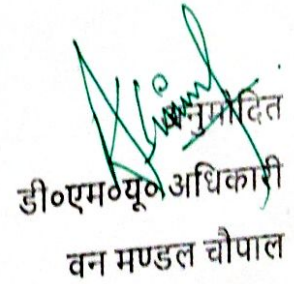 अनुमोदित
डी०एम०यू० अधिकारी
वन मण्डल चौपाल